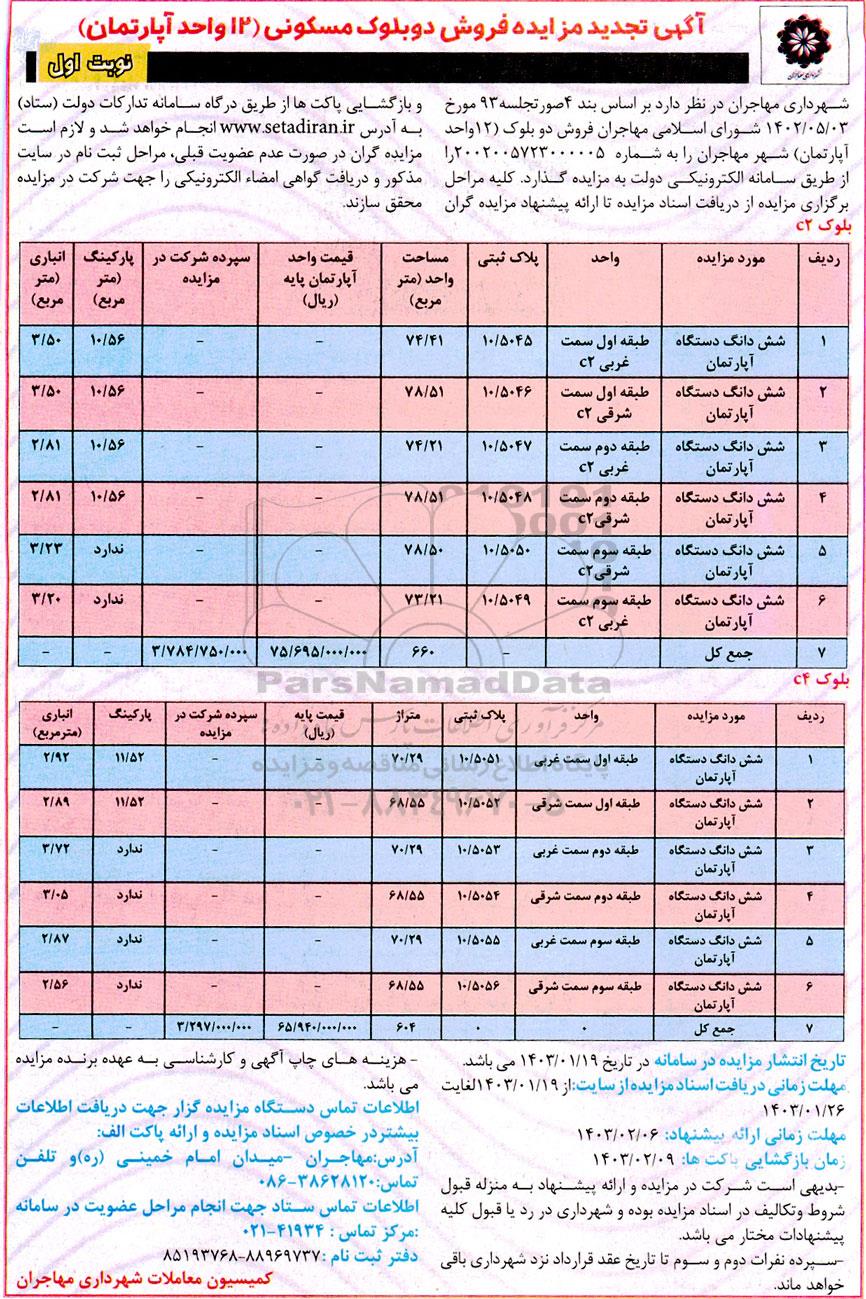 آگهی تجدید مزایده فروش دوبلوک مسکونی (۱۲ واحد آپارتمان)
نوبت اول
شهرداری مهاجران
شهرداری مهاجران در نظر دارد بر اساس بند ۴صورتجلسه۹۳ مورخ
۱۴۰۲/۰۵/۰۳ شورای اسلامی مهاجران فروش دو بلوک (۱۲واحد
آپارتمان) شهر مهاجران را به شماره ۲۰۰۲۰۰۵۷۲۳۰۰۰۰۰۵را
از طریق سامانه الکترونیکی دولت به مزایده گذارد. کلیه مراحل
برگزاری مزایده از دریافت اسناد مزایده تا ارائه پیشنهاد مزایده گران
و بازگشایی پاکت ها از طریق درگاه سامانه تدارکات دولت (ستاد)
به آدرس www.setadiran.ir انجام خواهد شد و لازم است
مزایده گران در صورت عدم عضویت قبلی، مراحل ثبت نام در سایت
مذکور و دریافت گواهی امضاء الکترونیکی را جهت شرکت در مزایده
محقق سازند.
بلوک c۲
ردیف مورد مزایده واحد پلاک ثبتی مساحت واحد (متر مربع) قیمت واحد آپارتمان پایه (ریال) سپرده شرکت در مزایده پارکینگ (متر مربع) انباری (متر مربع)
۱ شش دانگ دستگاه آپارتمان طبقه اول سمت غربی c۲ ۱۰/۵۰۴۵ ۷۴/۴۱ - - ۱۰/۵۶ ۳/۵۰
۲ شش دانگ دستگاه آپارتمان طبقه اول سمت شرقی c۲ ۱۰/۵۰۴۶ ۷۸/۵۱ - - ۱۰/۵۶ ۳/۵۰
۳ شش دانگ دستگاه آپارتمان طبقه دوم سمت غربی c۲ ۱۰/۵۰۴۷ ۷۴/۲۱ - - ۱۰/۵۶ ۲/۸۱
۴ شش دانگ دستگاه آپارتمان طبقه دوم سمت شرقی c۲ ۱۰/۵۰۴۸ ۷۸/۵۱ - - ۱۰/۵۶ ۲/۸۱
۵ شش دانگ دستگاه آپارتمان طبقه سوم سمت شرقی c۲ ۱۰/۵۰۵۰ ۷۸/۵۰ - - ندارد ۳/۲۳
۶ شش دانگ دستگاه آپارتمان طبقه سوم سمت غربی c۲ ۱۰/۵۰۴۹ ۷۳/۲۱ - - ندارد ۳/۲۰
۷ جمع کل - ۶۶۰ ۷۵/۶۹۵/۰۰۰/۰۰۰ ۳/۷۸۴/۷۵۰/۰۰۰ - -
بلوک c۴
ParsNamadData
ردیف مورد مزایده واحد پلاک ثبتی متراژ قیمت پایه (ریال) سپرده شرکت در مزایده پارکینگ انباری (مترمربع)
۱ شش دانگ دستگاه آپارتمان طبقه اول سمت غربی ۱۰/۵۰۵۱ ۷۰/۲۹ - - ۱۱/۵۲ ۲/۹۲
۲ شش دانگ دستگاه آپارتمان طبقه اول سمت شرقی ۱۰/۵۰۵۲ ۶۸/۵۵ - - ۱۱/۵۲ ۲/۸۹
۳ شش دانگ دستگاه آپارتمان طبقه دوم سمت غربی ۱۰/۵۰۵۳ ۷۰/۲۹ - - ندارد ۳/۷۲
۴ شش دانگ دستگاه آپارتمان طبقه دوم سمت شرقی ۱۰/۵۰۵۴ ۶۸/۵۵ - - ندارد ۳/۰۵
۵ شش دانگ دستگاه آپارتمان طبقه سوم سمت غربی ۱۰/۵۰۵۵ ۷۰/۲۹ - - ندارد ۲/۸۷
۶ شش دانگ دستگاه آپارتمان طبقه سوم سمت شرقی ۱۰/۵۰۵۶ ۶۸/۵۵ - - ندارد ۲/۵۶
۷ جمع کل ۰ ۰ ۶۰۴ ۶۵/۹۴۰/۰۰۰/۰۰۰ ۳/۲۹۷/۰۰۰/۰۰۰ - -
پایگاه اطلاع رسانی مناقصه و مزایده
۰۲۱-۸۸۳۴۹۶۷۰-۵
تاریخ انتشار مزایده در سامانه در تاریخ ۱۴۰۳/۰۱/۱۹ می باشد.
مهلت زمانی دریافت اسناد مزایده از سایت:از ۱۴۰۳/۰۱/۱۹لغایت
۱۴۰۳/۰۱/۲۶
مهلت زمانی ارائه پیشنهاد: ۱۴۰۳/۰۲/۰۶
زمان بازگشایی پاکت ها: ۱۴۰۳/۰۲/۰۹
-بدیهی است شرکت در مزایده و ارائه پیشنهاد به منزله قبول
شروط وتکالیف در اسناد مزایده بوده و شهرداری در رد یا قبول کلیه
پیشنهادات مختار می باشد.
-سپرده نفرات دوم و سوم تا تاریخ عقد قرارداد نزد شهرداری باقی
خواهد ماند.
- هزینه های چاپ آگهی و کارشناسی به عهده برنده مزایده
می باشد.
اطلاعات تماس دستگاه مزایده گزار جهت دریافت اطلاعات
بیشتردر خصوص اسناد مزایده و ارائه پاکت الف:
آدرس:مهاجران -میدان امام خمینی (ره)و تلفن
تماس:۳۸۶۲۸۱۲۰-۰۸۶
اطلاعات تماس ستاد جهت انجام مراحل عضویت در سامانه
:مرکز تماس : ۴۱۹۳۴-۰۲۱
دفتر ثبت نام :۸۸۹۶۹۷۳۷-۸۵۱۹۳۷۶۸
کمیسیون معاملات شهرداری مهاجران